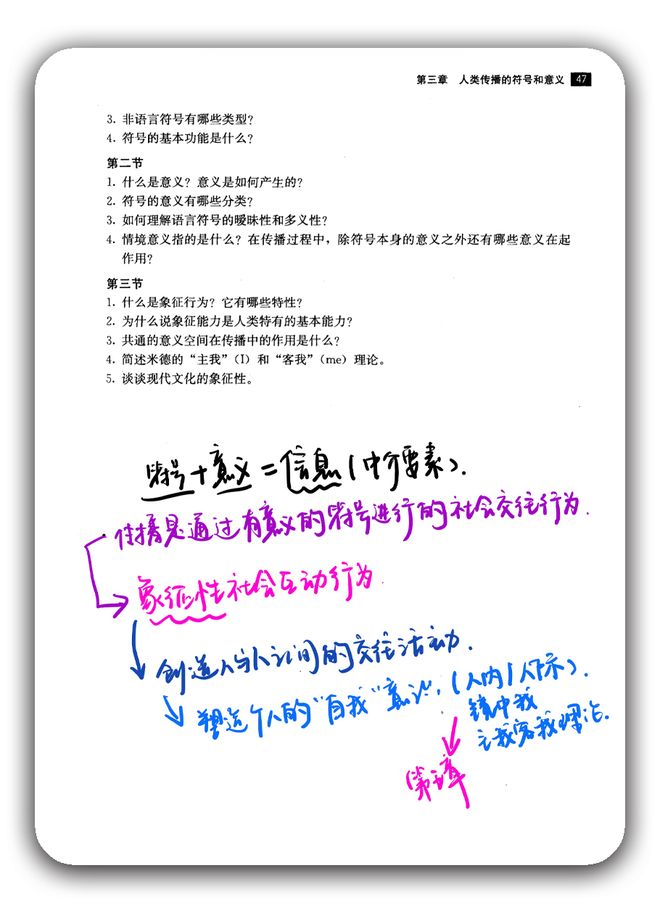 第三章 人类传播的符号和意义 47
3. 非语言符号有哪些类型？
4. 符号的基本功能是什么？
第二节
1. 什么是意义？意义是如何产生的？
2. 符号的意义有哪些分类？
3. 如何理解语言符号的暧昧性和多义性？
4. 情境意义指的是什么？在传播过程中，除符号本身的意义之外还有哪些意义在起
作用？
第三节
1. 什么是象征行为？它有哪些特性？
2. 为什么说象征能力是人类特有的基本能力？
3. 共通的意义空间在传播中的作用是什么？
4. 简述米德的“主我”（I）和“客我”（me）理论。
5. 谈谈现代文化的象征性。
符号+意义=信息（中介要素）.
传播是通过有意义的符号进行的社会交往行为.
象征性社会互动行为
创造人与人之间的交往活动.
塑造个人的“自我”意识，（人内/人际）.
镜中我
主我客我理论.